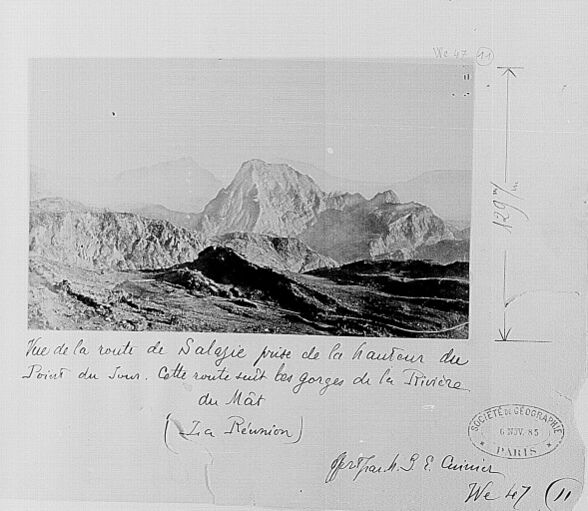 We 47 (11)
129 m/m
Vue de la route de Salazie prise de la hauteur du
Point du Jour. Cette route suit les gorges de la Rivière
du Mât
(La Réunion)
SOCIÉTÉ DE GÉOGRAPHIE
6 NOV. 85
PARIS
offert par M. G. E. Cuinier
We 47 (11)